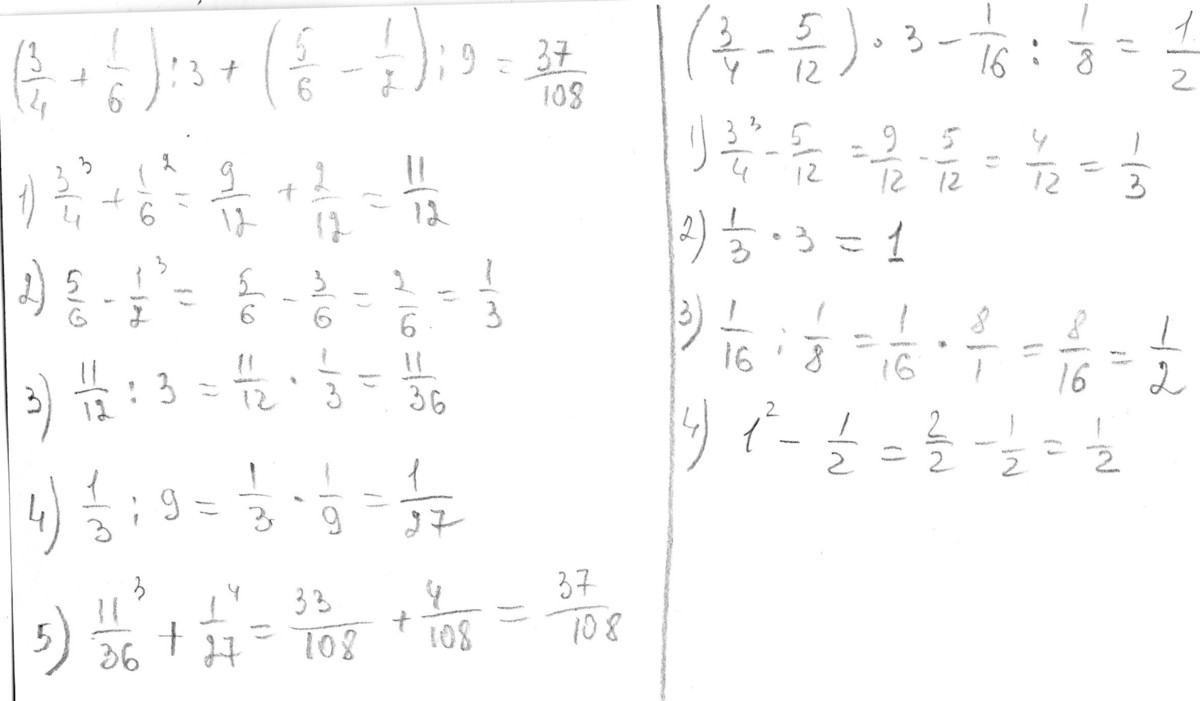 (3/4 + 1/6) : 3 + (5/6 - 1/2) : 9 = 37/108
1) 3/4 ³ + 1/6 ² = 9/12 + 2/12 = 11/12
2) 5/6 - 1/2 ³ = 5/6 - 3/6 = 2/6 = 1/3
3) 11/12 : 3 = 11/12 · 1/3 = 11/36
4) 1/3 : 9 = 1/3 · 1/9 = 1/27
5) 11/36 ³ + 1/27 ⁴ = 33/108 + 4/108 = 37/108
(3/4 - 5/12) · 3 - 1/16 : 1/8 = 1/2
1) 3/4 ³ - 5/12 = 9/12 - 5/12 = 4/12 = 1/3
2) 1/3 · 3 = 1
3) 1/16 : 1/8 = 1/16 · 8/1 = 8/16 = 1/2
4) 1² - 1/2 = 2/2 - 1/2 = 1/2